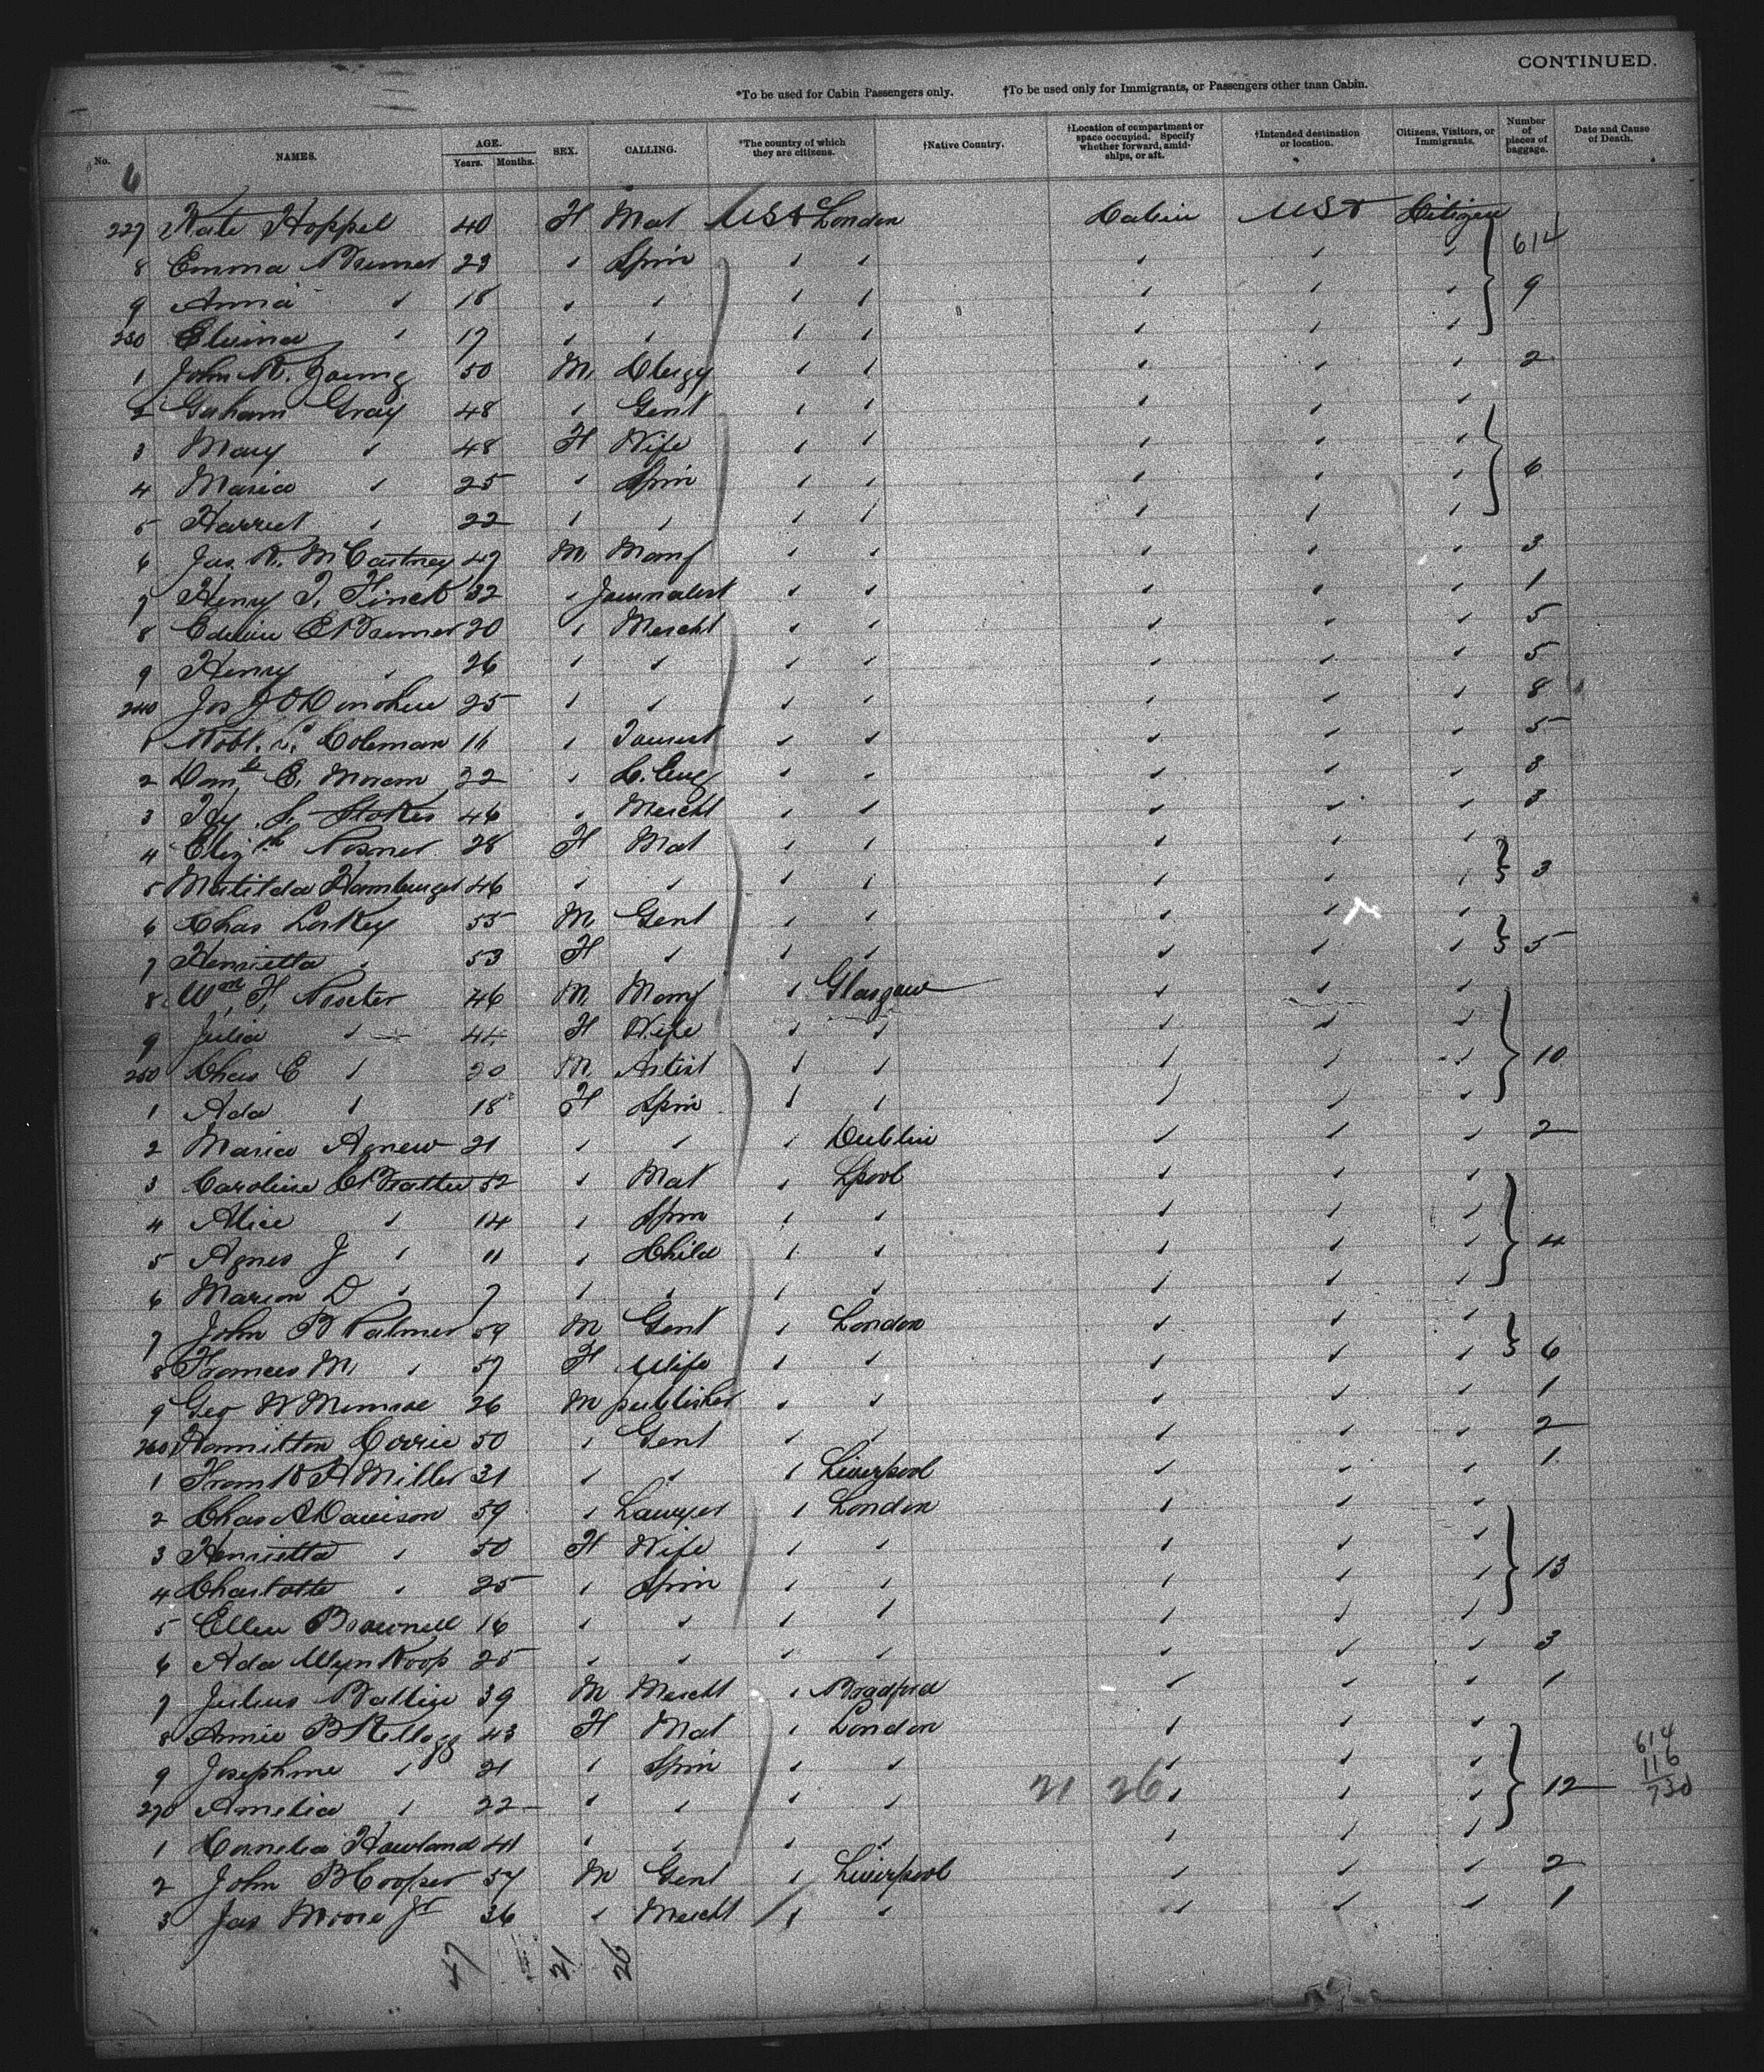 CONTINUED.
*To be used for Cabin Passengers only. †To be used only for Immigrants, or Passengers other than Cabin.
No. NAMES. AGE. Years. Months. SEX. CALLING. *The country of which they are citizens. †Native Country. †Location of compartment or space occupied. Specify whether forward, amidships, or aft. †Intended destination or location. Citizens, Visitors, or Immigrants. Number of pieces of baggage. Date and Cause of Death.
6
227 Kate Hoppel 40 F Mat USA London Cabin USA Citizen
614
8 Emma 23 " Spin " " " " "
9 Anna " 18 " " " " " " " 9
230 " 17 " " " " " " "
1 John R. Young 50 M Clergy " " " " " 2
2 Graham Gray 48 " Gent " " " " "
3 Mary " 48 F Wife " " " " "
4 Maria " 25 " Spin " " " " " 6
5 Harriet " 22 " " " " " " "
6 Jas. R. McCartney 47 M Manf " " " " " 3
7 Henry T. Finck 32 " Journalist " " " " " 1
8 Edwin 20 " Mercht " " " " " 5
9 Henry " 26 " " " " " " " 5
240 Jos J O'Donohue 25 " " " " " " " 8
1 Robt. Coleman 16 " Tourist " " " " " 5
2 E. Moran 32 " C. Eng " " " " " 3
3 Hy. S. Stokes 46 " Mercht " " " " " 3
4 Elizth Posner 28 F Mat " " " " "
5 Matilda Hamburger 46 " " " " " " " 3
6 Chas Loskey 55 M Gent " " " " "
7 Henrietta " 53 F " " " " " " 5
8 Wm F. Procter 46 M Manf " Glasgow " " "
9 Julia " 44 F Wife " " " " "
250 Chas E " 20 M Artist " " " " " 10
1 Ada " 18 F Spin " " " " "
2 Maria Agnew 21 " " " Dublin " " " 2
3 Caroline 52 " Mat " Lpool " " "
4 Alice " 14 " Spin " " " " "
5 Agnes J " 11 " Child " " " " " 4
6 Marion D " 7 " " " " " " "
7 John B Palmer 59 M Gent " London " " "
8 Frances M " 57 F Wife " " " " " 6
9 Geo W Munroe 26 M publisher " " " " " 1
260 Hamilton Corrie 50 " Gent " " " " " 2
1 Miller 31 " " " Liverpool " " " 1
2 Chas A Davison 59 " Lawyer " London " " "
3 Henrietta " 50 F Wife " " " " "
4 Charlotte " 25 " Spin " " " " " 13
5 Ellen Brownell 16 " " " " " " "
6 Ada WynKoop 25 " " " " " " " 3
7 Julius 39 M Mercht " Bradford " " " 1
8 B Kellogg 43 F Mat " London " " "
9 Josephine " 21 " Spin " " " " "
614
116
730
21 26
270 Amelia " 22 " " " " " " " 12
1 Cornelia Howland 41 " " " " " " "
2 John B Cooper 57 M Gent " Liverpool " " " 2
3 Jas Moore Jr 36 " Mercht " " " " " 1
47 21 26